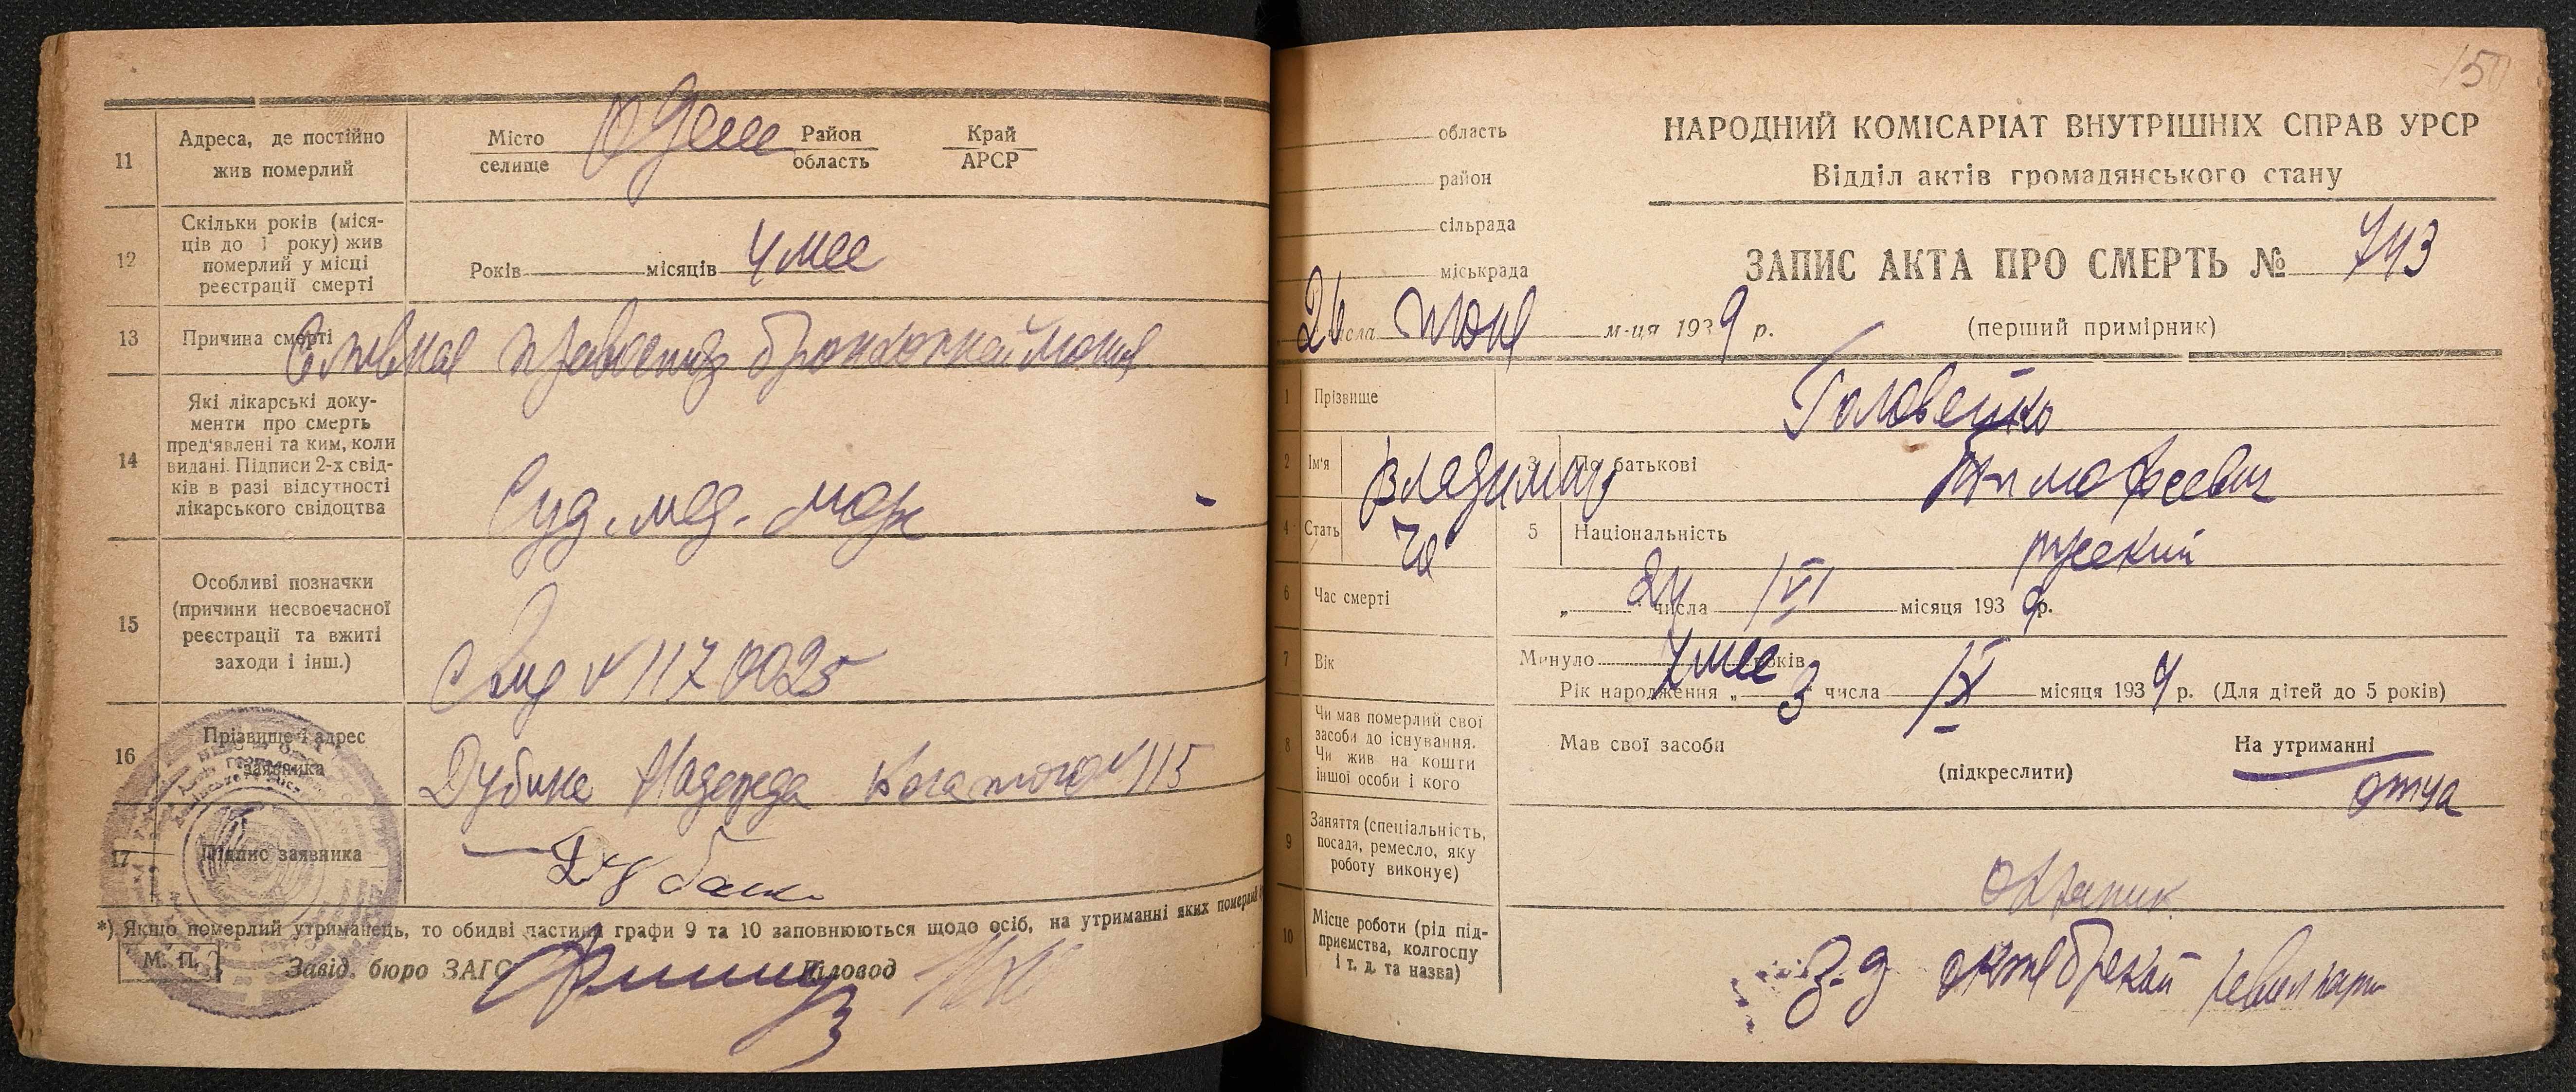 11
Адреса, де постійно
жив померлий
Місто
селище
Одесса
Район
область
Край
АРСР
12
Скільки років (міся-
ців до 1 року) жив
померлий у місці
реєстрації смерті
Років
місяців
4 мес
13
Причина смерті
бронхопневмония
14
Які лікарські доку-
менти про смерть
пред'явлені та ким, коли
видані. Підписи 2-х свід-
ків в разі відсутності
лікарського свідоцтва
Суд. мед.
15
Особливі позначки
(причини несвоєчасної
реєстрації та вжиті
заходи і інш.)
№ 1170025
16
Прізвище і адрес
заявника
Дубина Надежда №115
17
Підпис заявника
*) Якщо померлий утриманець, то обидві частини графи 9 та 10 заповнюються щодо осіб, на утриманні яких померлий
М. П.
Завід. бюро ЗАГС
Діловод
150
область
район
сільрада
міськрада
НАРОДНИЙ КОМІСАРІАТ ВНУТРІШНІХ СПРАВ УРСР
Відділ актів громадянського стану
ЗАПИС АКТА ПРО СМЕРТЬ № 743
26 числа июня м-ця 1939 р.
(перший примірник)
1
Прізвище
2
Ім'я
Владимир
3
По батькові
Тимофеевич
4
Стать
5
Національність
русский
6
Час смерті
„ 24 " числа VI місяця 1939 р.
7
Вік
Минуло
мес
років
Рік народження „ 3 числа IX місяця 193 р. (Для дітей до 5 років)
8
Чи мав померлий свої
засоби до існування.
Чи жив на кошти
іншої особи і кого
Мав свої засоби
(підкреслити)
На утриманні
отца
9
Заняття (спеціальність,
посада, ремесло, яку
роботу виконує)
охранник
10
Місце роботи (рід під-
приємства, колгоспу
і т. д. та назва)
з-д октябрьской революции